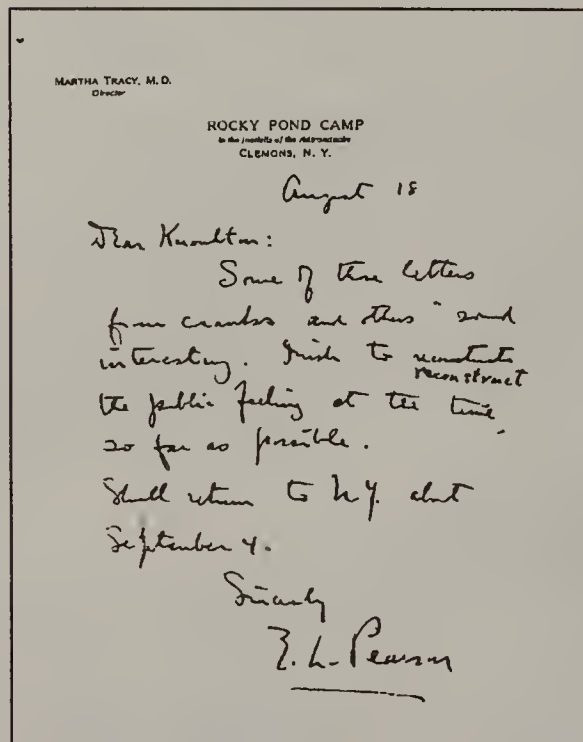 MARTHA TRACY, M. D.
Director
ROCKY POND CAMP
in the foothills of the Adirondacks
CLEMONS, N. Y.
August 18
Dear Knowlton:
Some of those letters
from cranks and others" sound
interesting. Wish to
reconstruct
the public feeling at the time
so far as possible.
Shall return to N.Y. about
September 4.
Sincerely
E. L. Pearson